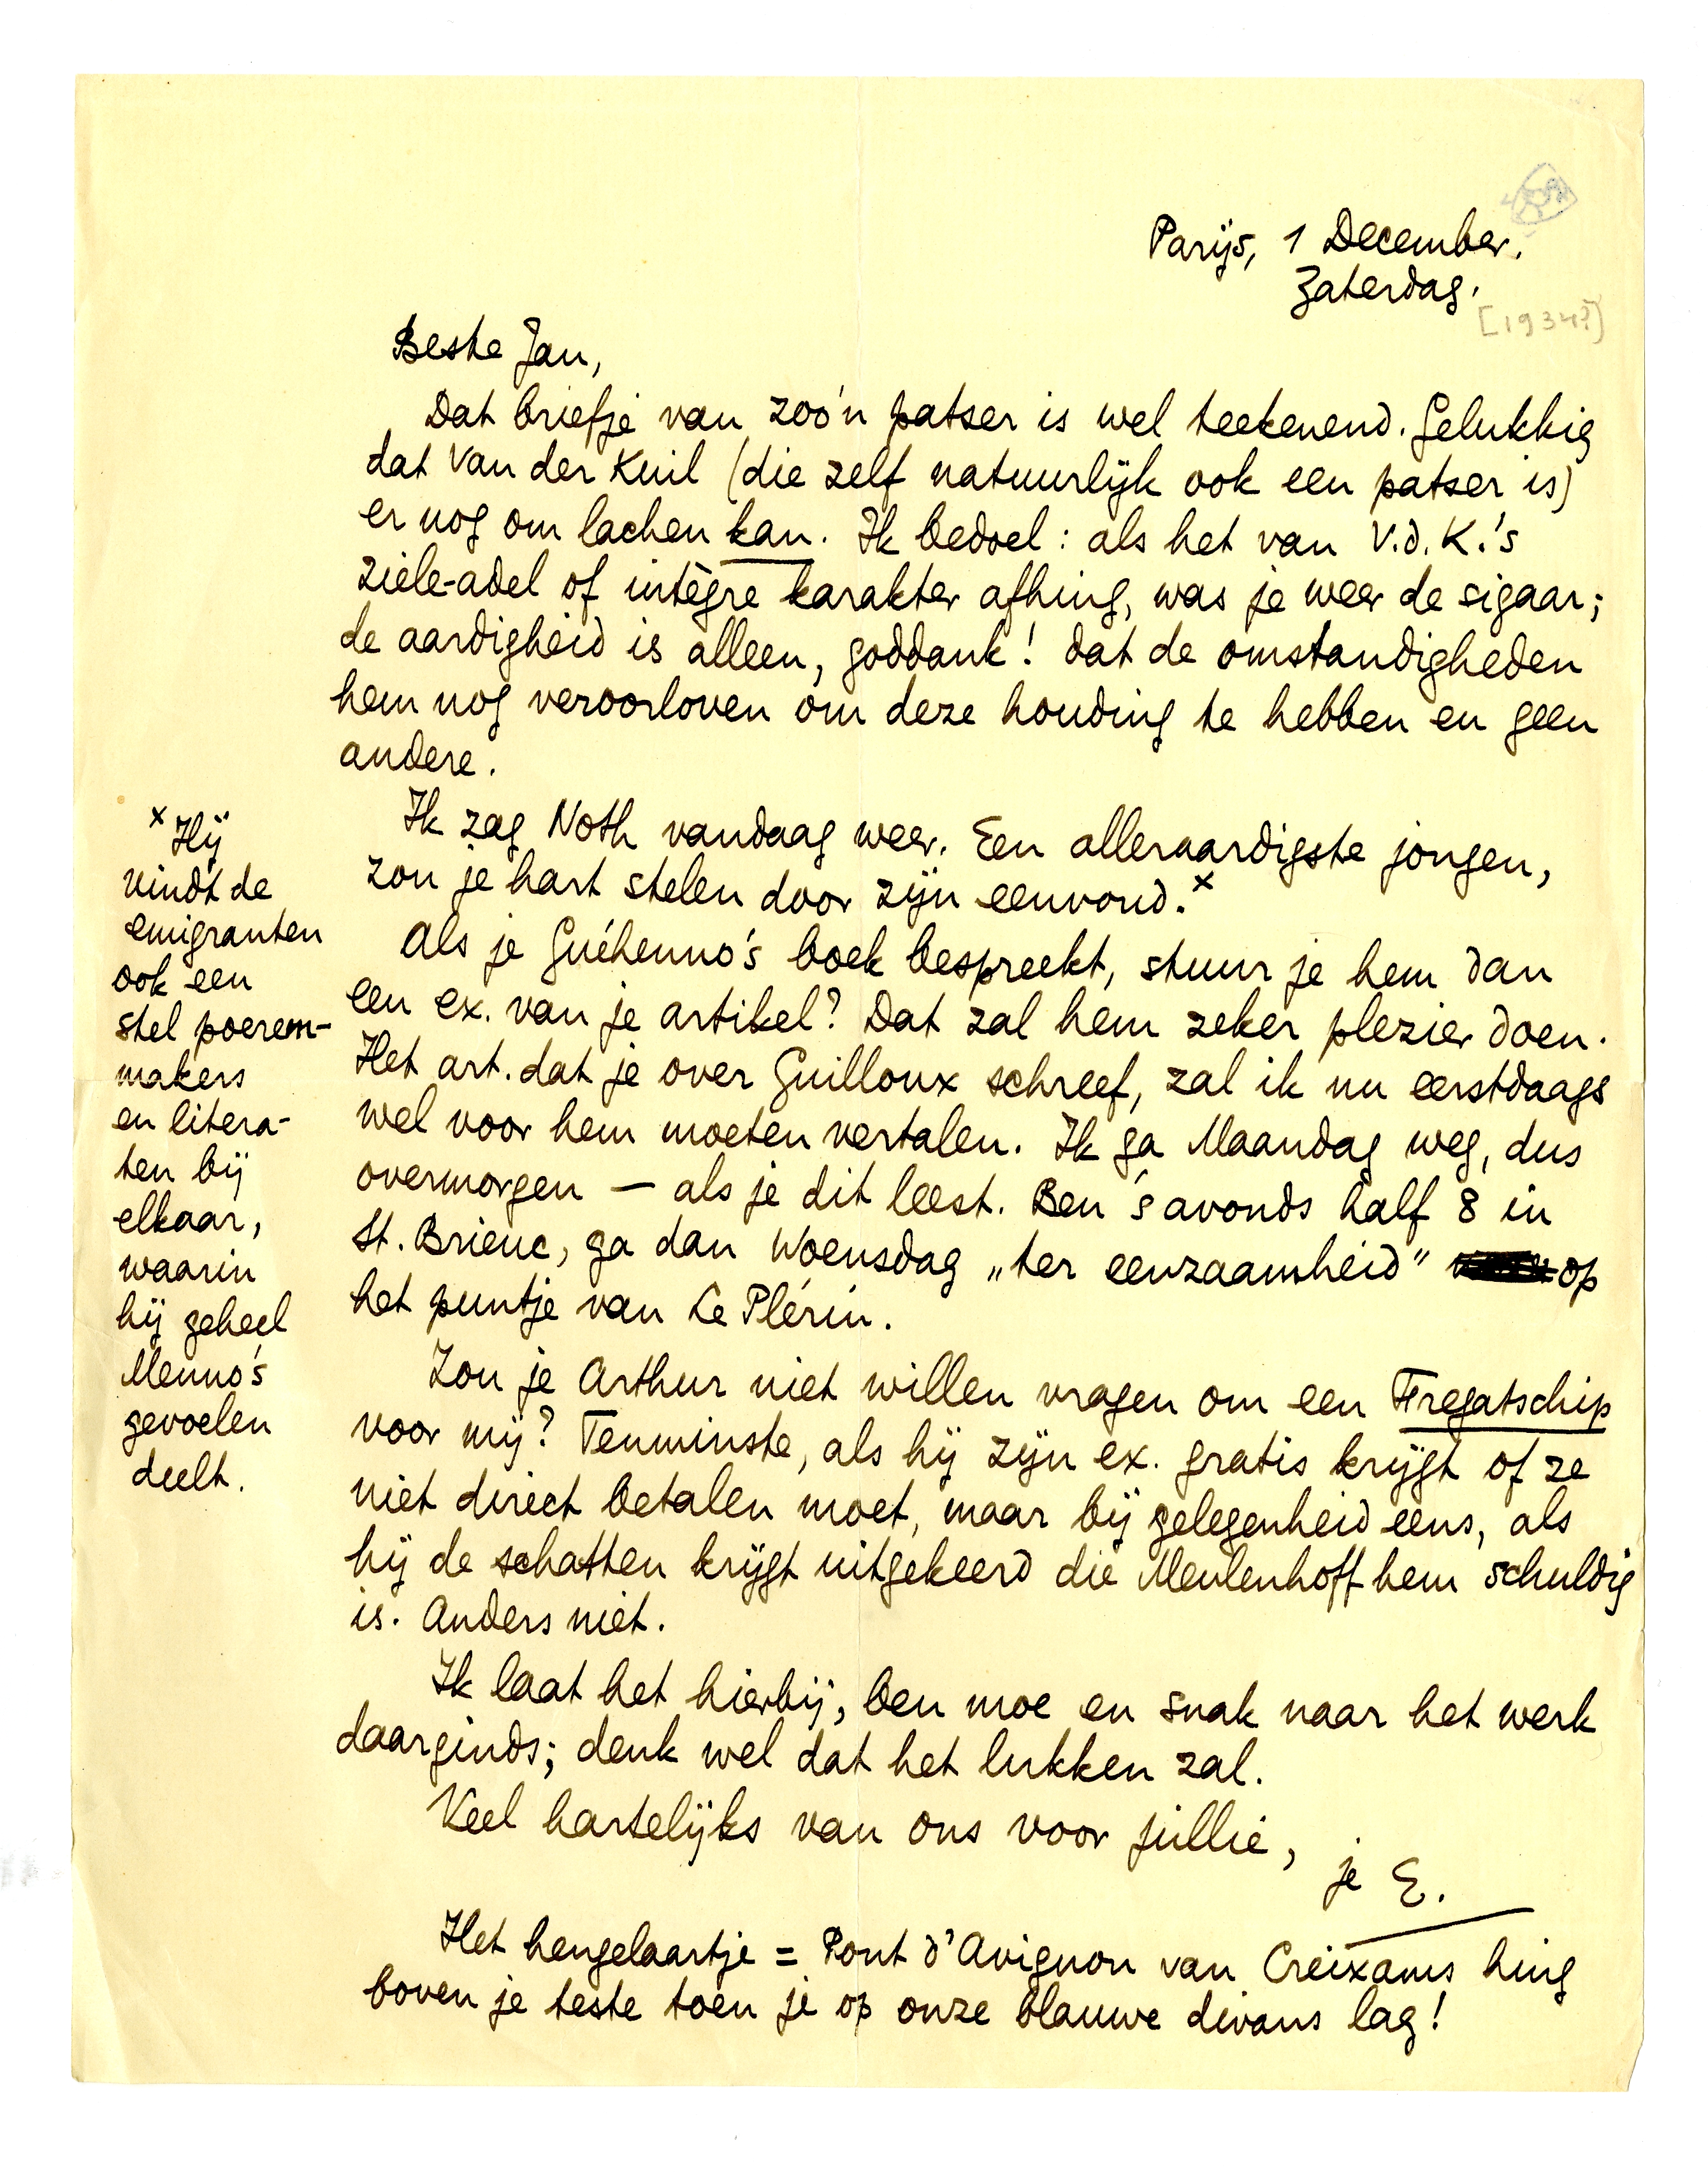 Parijs, 1 December.
Zaterdag.
[1934?]
Beste Jan,
Dat briefje van zoo'n patser is wel teekenend. Gelukkig
dat Van der Kuil (die zelf natuurlijk ook een patser is)
er nog om lachen kan. Ik bedoel: als het van V.d.K.'s
ziele-adel of intègre karakter afhing, was je weer de sigaar;
de aardigheid is alleen, goddank! dat de omstandigheden
hem nog veroorloven om deze houding te hebben en geen
andere.
Ik zag Noth vandaag weer. Een alleraardigste jongen,
zou je hart stelen door zijn eenvoud.x
Als je Guéhenno's boek bespreekt, stuur je hem dan
een ex. van je artikel? Dat zal hem zeker plezier doen.
Het art. dat je over Guilloux schreef, zal ik nu eerstdaags
wel voor hem moeten vertalen. Ik ga Maandag weg, dus
overmorgen — als je dit leest. Ben 's avonds half 8 in
St. Brieuc, ga dan Woensdag „ter eenzaamheid" op
het puntje van Le Plérin.
Zou je Arthur niet willen vragen om een Fregatschip
voor mij? Tenminste, als hij zijn ex. gratis krijgt of ze
niet direct betalen moet, maar bij gelegenheid eens, als
hij de schatten krijgt uitgekeerd die Meulenhoff hem schuldig
is. Anders niet.
Ik laat het hierbij, ben moe en snak naar het werk
daarginds; denk wel dat het lukken zal.
Veel hartelijks van ons voor jullie,
je E.
Het hengelaartje = Pont d'Avignon van Creixams hing
boven je teste toen je op onze blauwe divans lag!
x Hij
vindt de
emigranten
ook een
stel poeren-
makers
en litera-
ten bij
elkaar,
waarin
hij geheel
Menno's
gevoelen
deelt.